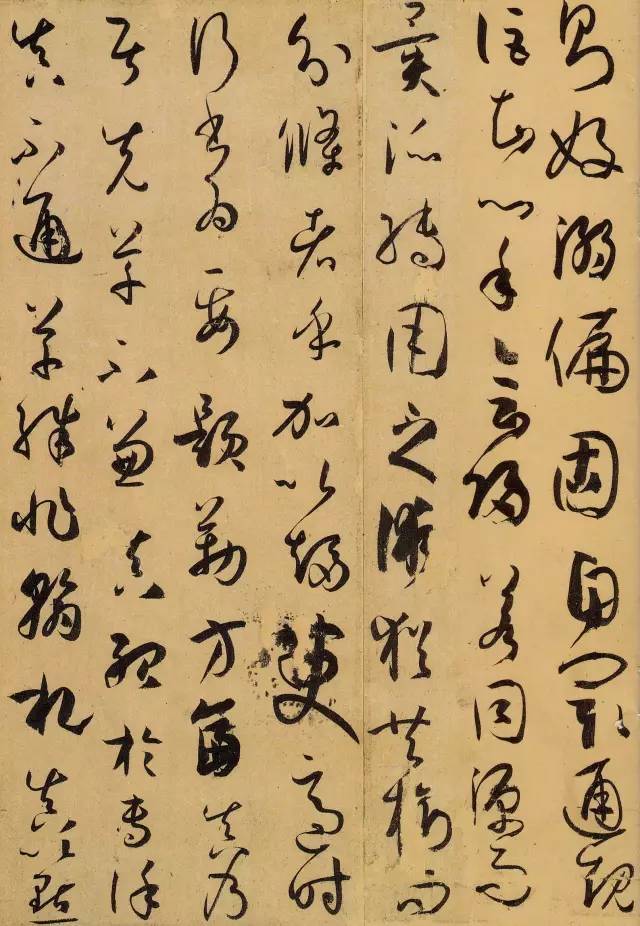 則好溺偏固自闋通規
詎知心手會歸若同源而
異派轉用之術猶共樹而
分條者乎加以趨變適時
行書為要題勒方畐真乃
居先草不兼真殆於專謹
真不通草殊非翰札真以點